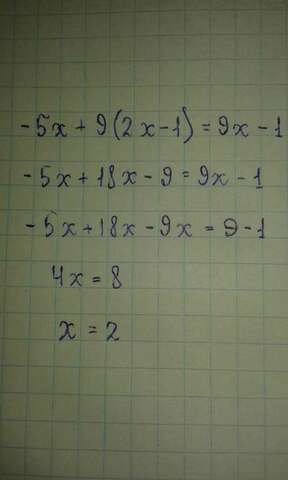 -5x + 9(2x-1) = 9x - 1
-5x + 18x - 9 = 9x - 1
-5x + 18x - 9x = 9 - 1
4x = 8
x = 2